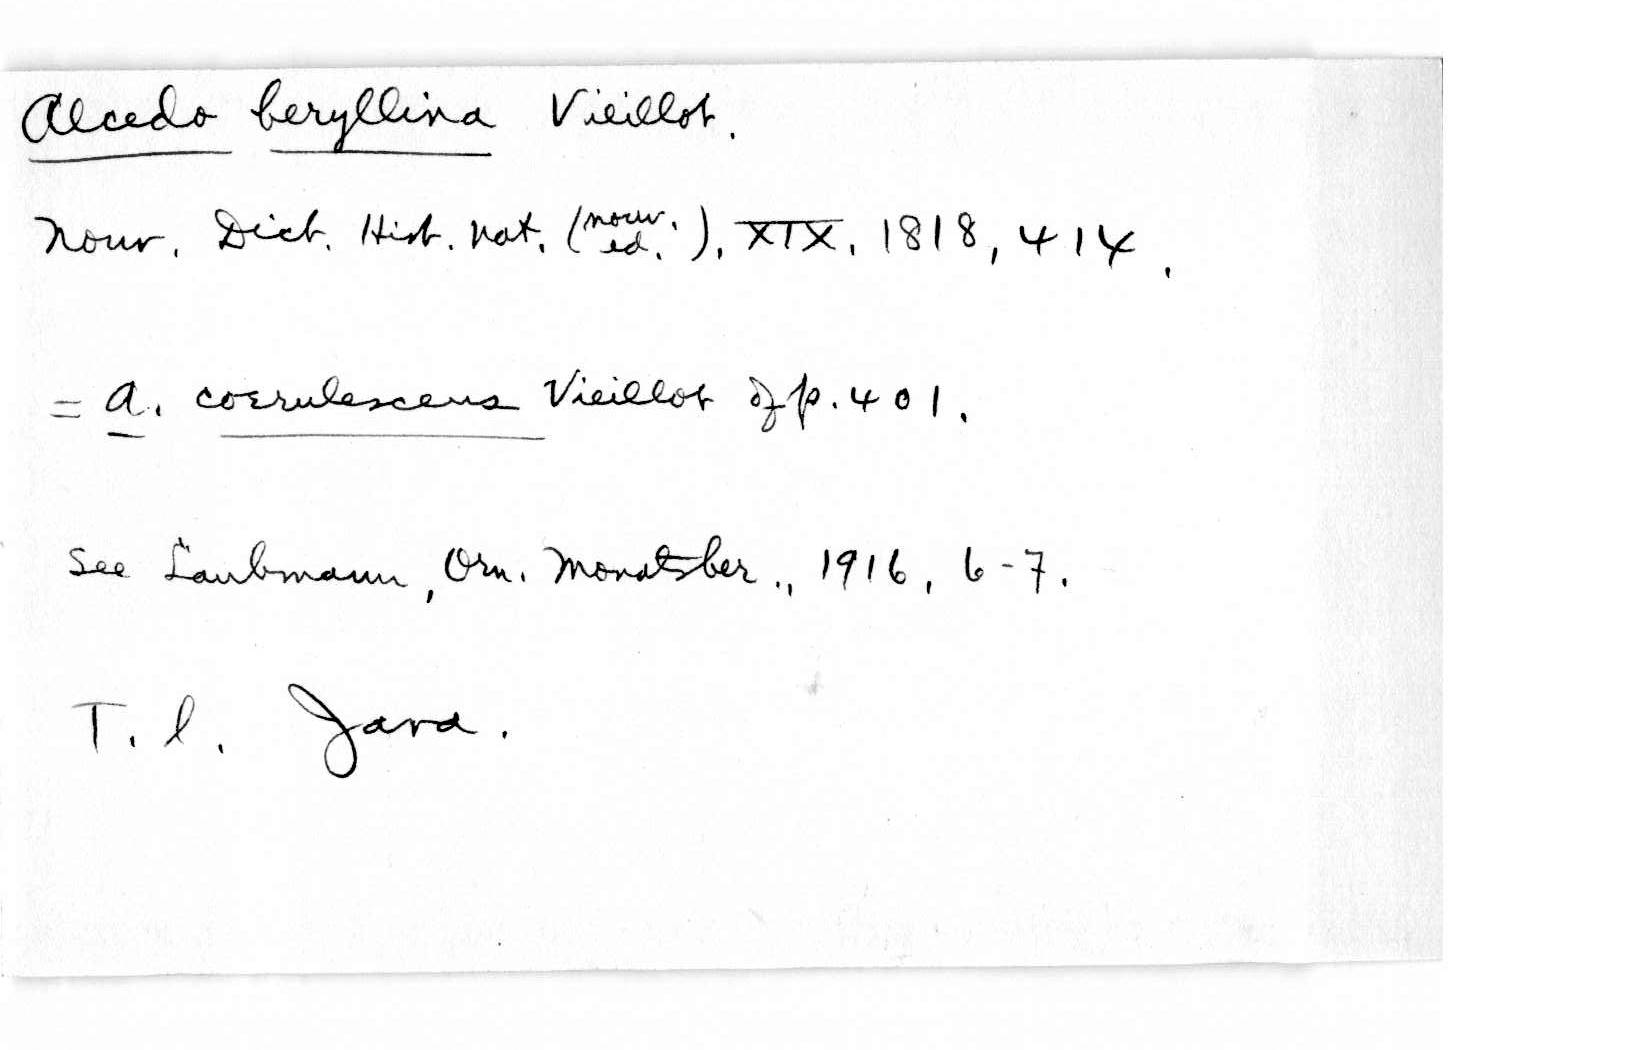 Alcedo beryllina Vieillot.
Nouv. Dict. Hist. nat. (nouv. ed.), XIX, 1818, 414.
= A. coerulescens Vieillot of p. 401.
See Laubmann, Orn. Monatsber., 1916, 6-7.
T. l. Java.